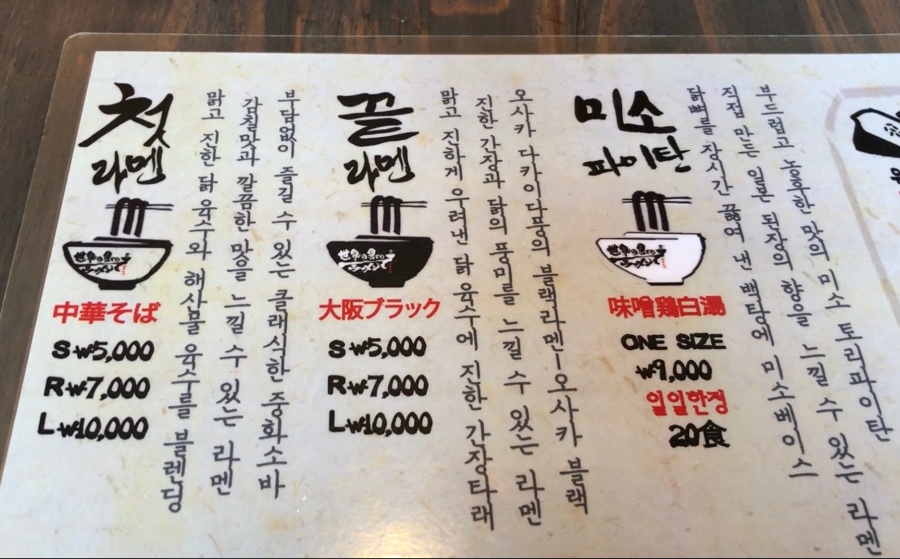 첫
라멘
世界の果ての
ラーメン
中華そば
S ₩5,000
R ₩7,000
L ₩10,000
부담없이 즐길 수 있는 클래식한 중화소바
감칠맛과 깔끔한 맛을 느낄 수 있는 라멘
맑고 진한 닭 육수와 해산물 육수를 블렌딩
꼴
라멘
世界の果ての
ラーメン
大阪ブラック
S ₩5,000
R ₩7,000
L ₩10,000
오사카 다카이다풍의 블랙라멘-오사카 블랙
진한 간장과 닭의 풍미를 느낄 수 있는 라멘
맑고 진하게 우려낸 닭 육수에 진한 간장타래
미소
파이탄
世界の果ての
ラーメン
味噌鶏白湯
ONE SIZE
₩9,000
일일한정
20食
부드럽고 농후한 맛의 미소 토리파이탄
직접 만든 일본 된장의 향을 느낄 수 있는 라멘
닭뼈를 장시간 끓여 낸 백탕에 미소베이스